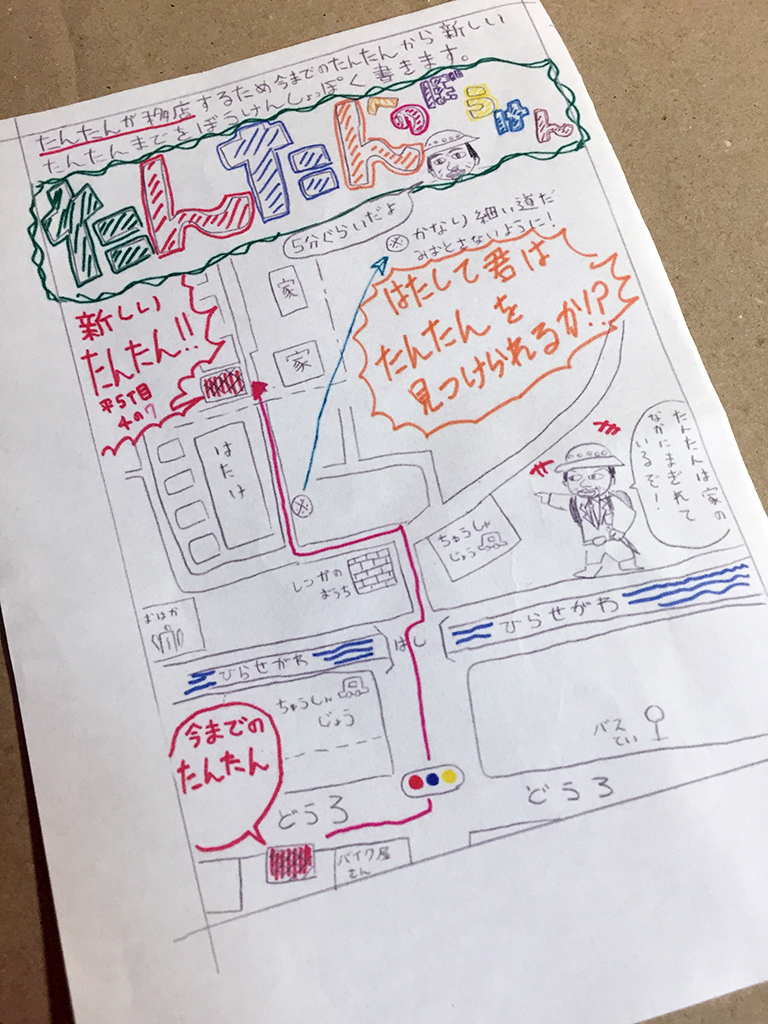 たんたんが移店するため今までのたんたんから新しい
たんたんまでをぼうけんしょっぽく書きます。
たんたんのぼうけん
5分ぐらいだよ
※かなり細い道だ
みおとさないように!
新しい
たんたん!!
平5丁目
4の7
家
家
はたして君は
たんたんを
見つけられるか!?
はたけ
※
たんたんは家の
なかにまぎれて
いるぞー!
ちゅうしゃ
じょう
レンガの
まうち
おはか
ひらせがわ
はし
ひらせがわ
ちゅうしゃ
じょう
バス
てい
今までの
たんたん
どうろ
どうろ
バイク屋
さん